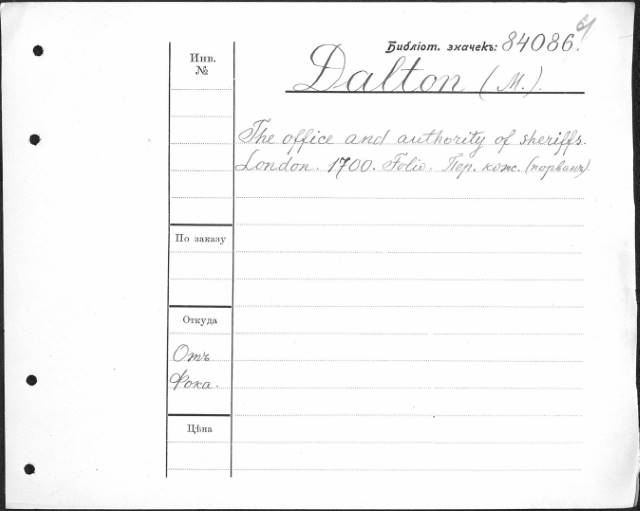 Библіот. значекъ: 84086.
Инв. №
Dalton (M.).
The office and authority of sheriffs.
London. 1700. Folio. Пер. кож. (порванъ)
По заказу
Откуда
Отъ
Фока.
Цѣна